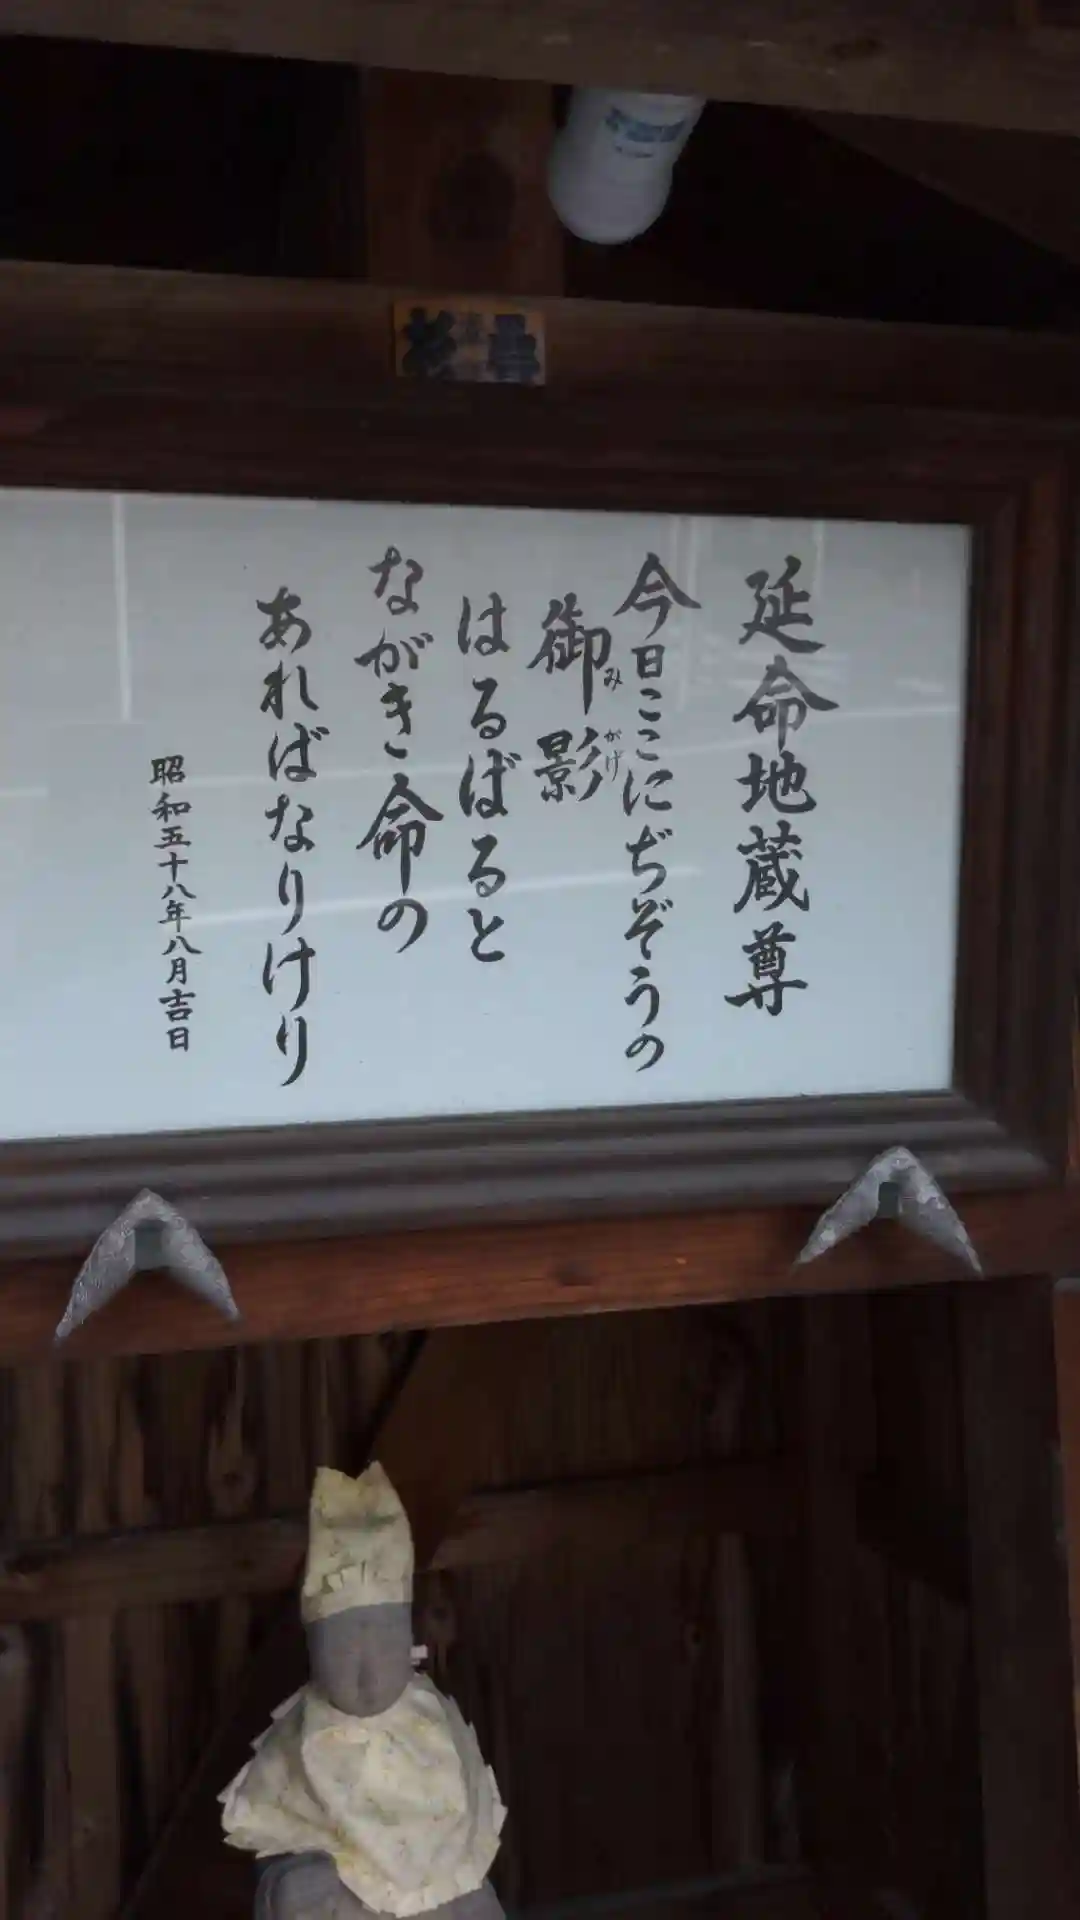 延命地蔵尊
今日ここにぢぞうの
御影
みがげ
はるばると
ながき命の
あればなりけり
昭和五十八年八月吉日